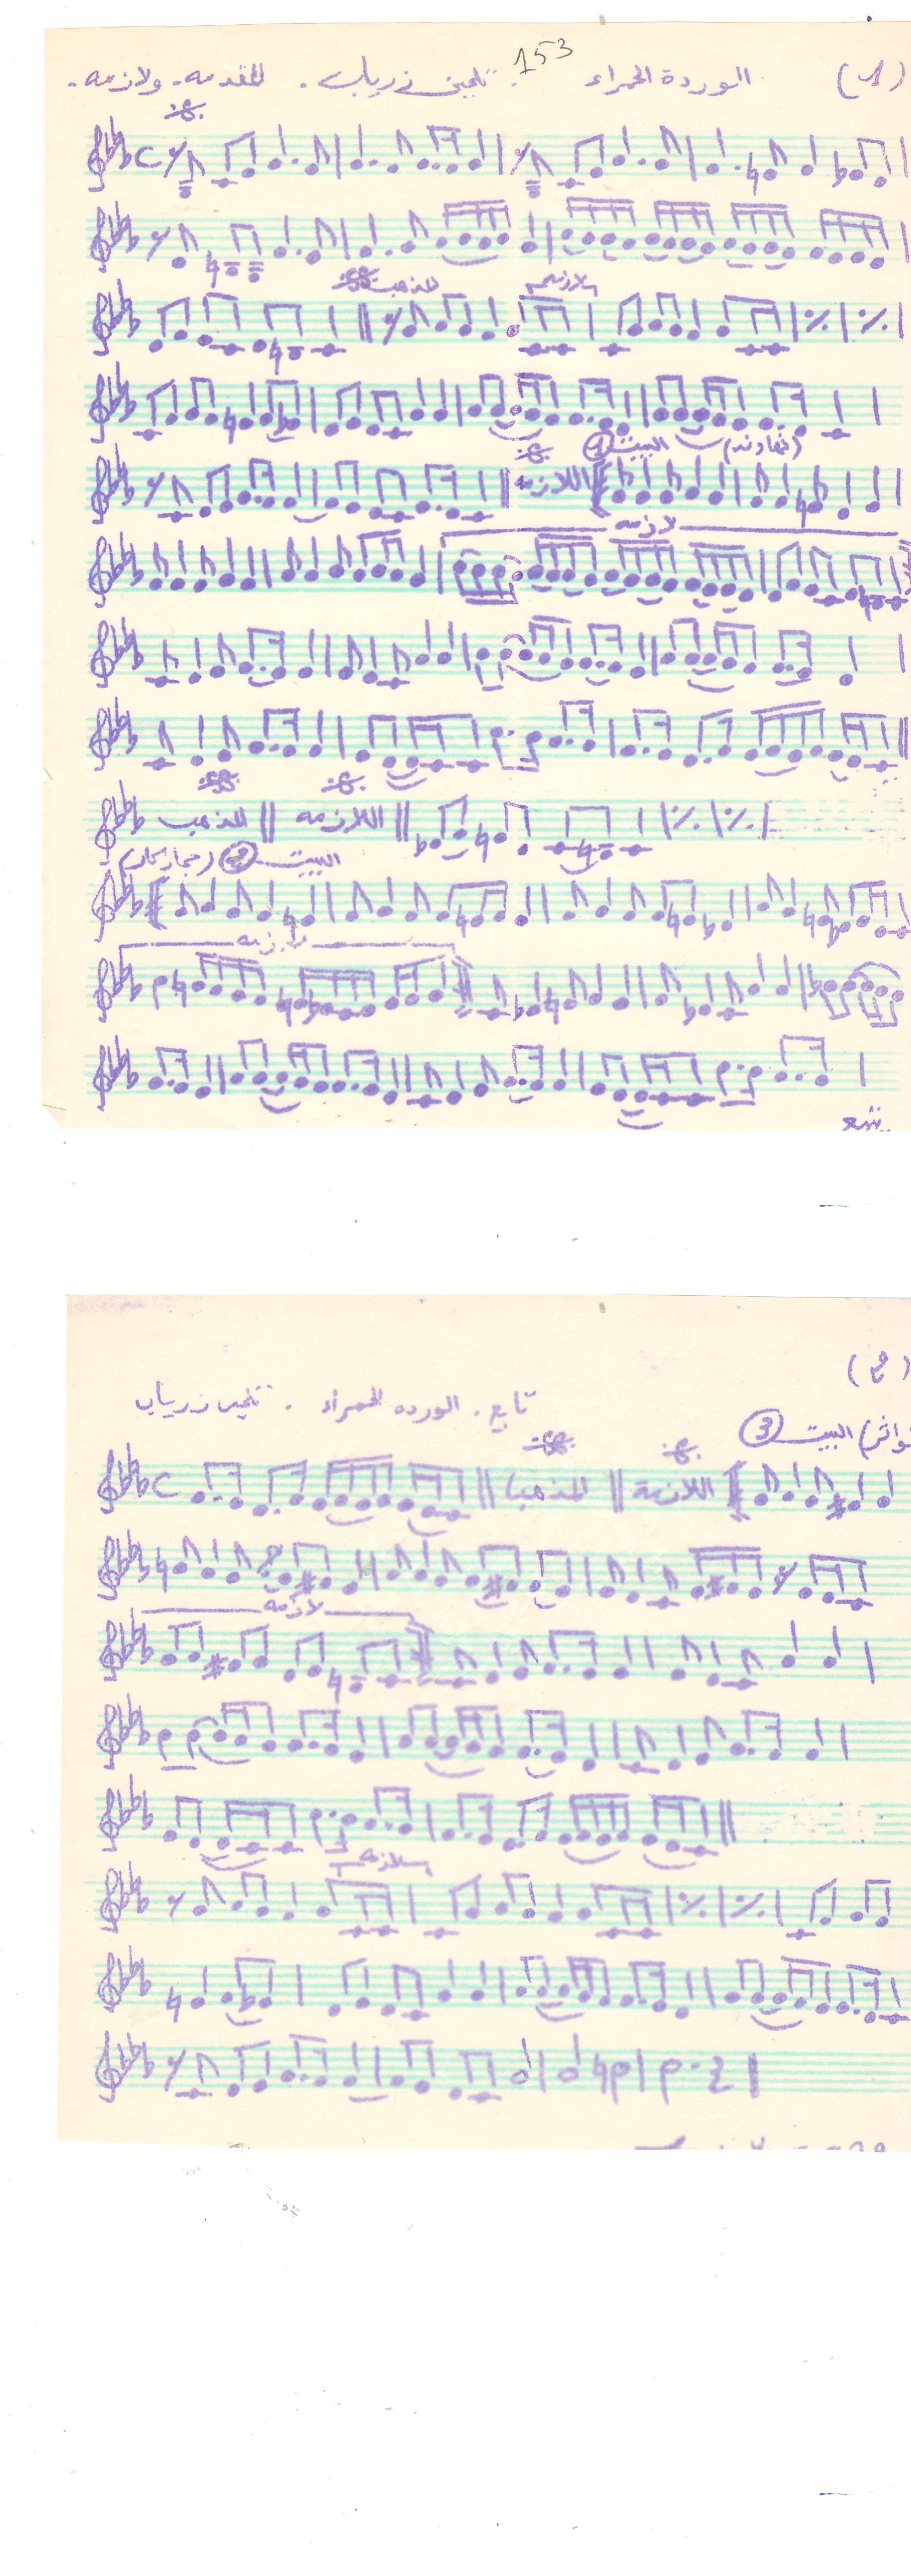 153
(١) الوردة الحمراء . تلحين زرياب . المقدمه - ولازمه -
المذهب اللازمه
البيت ① (نهاوند)
اللازمه
لازمه
المذهب اللازمه
البيت ② (حجازكار)
لازمه
يتبع
(٢)
تابع . الورده الحمراء . تلحين زرياب
البيت ③
C المذهب اللازمة
لازمه
اللازمه